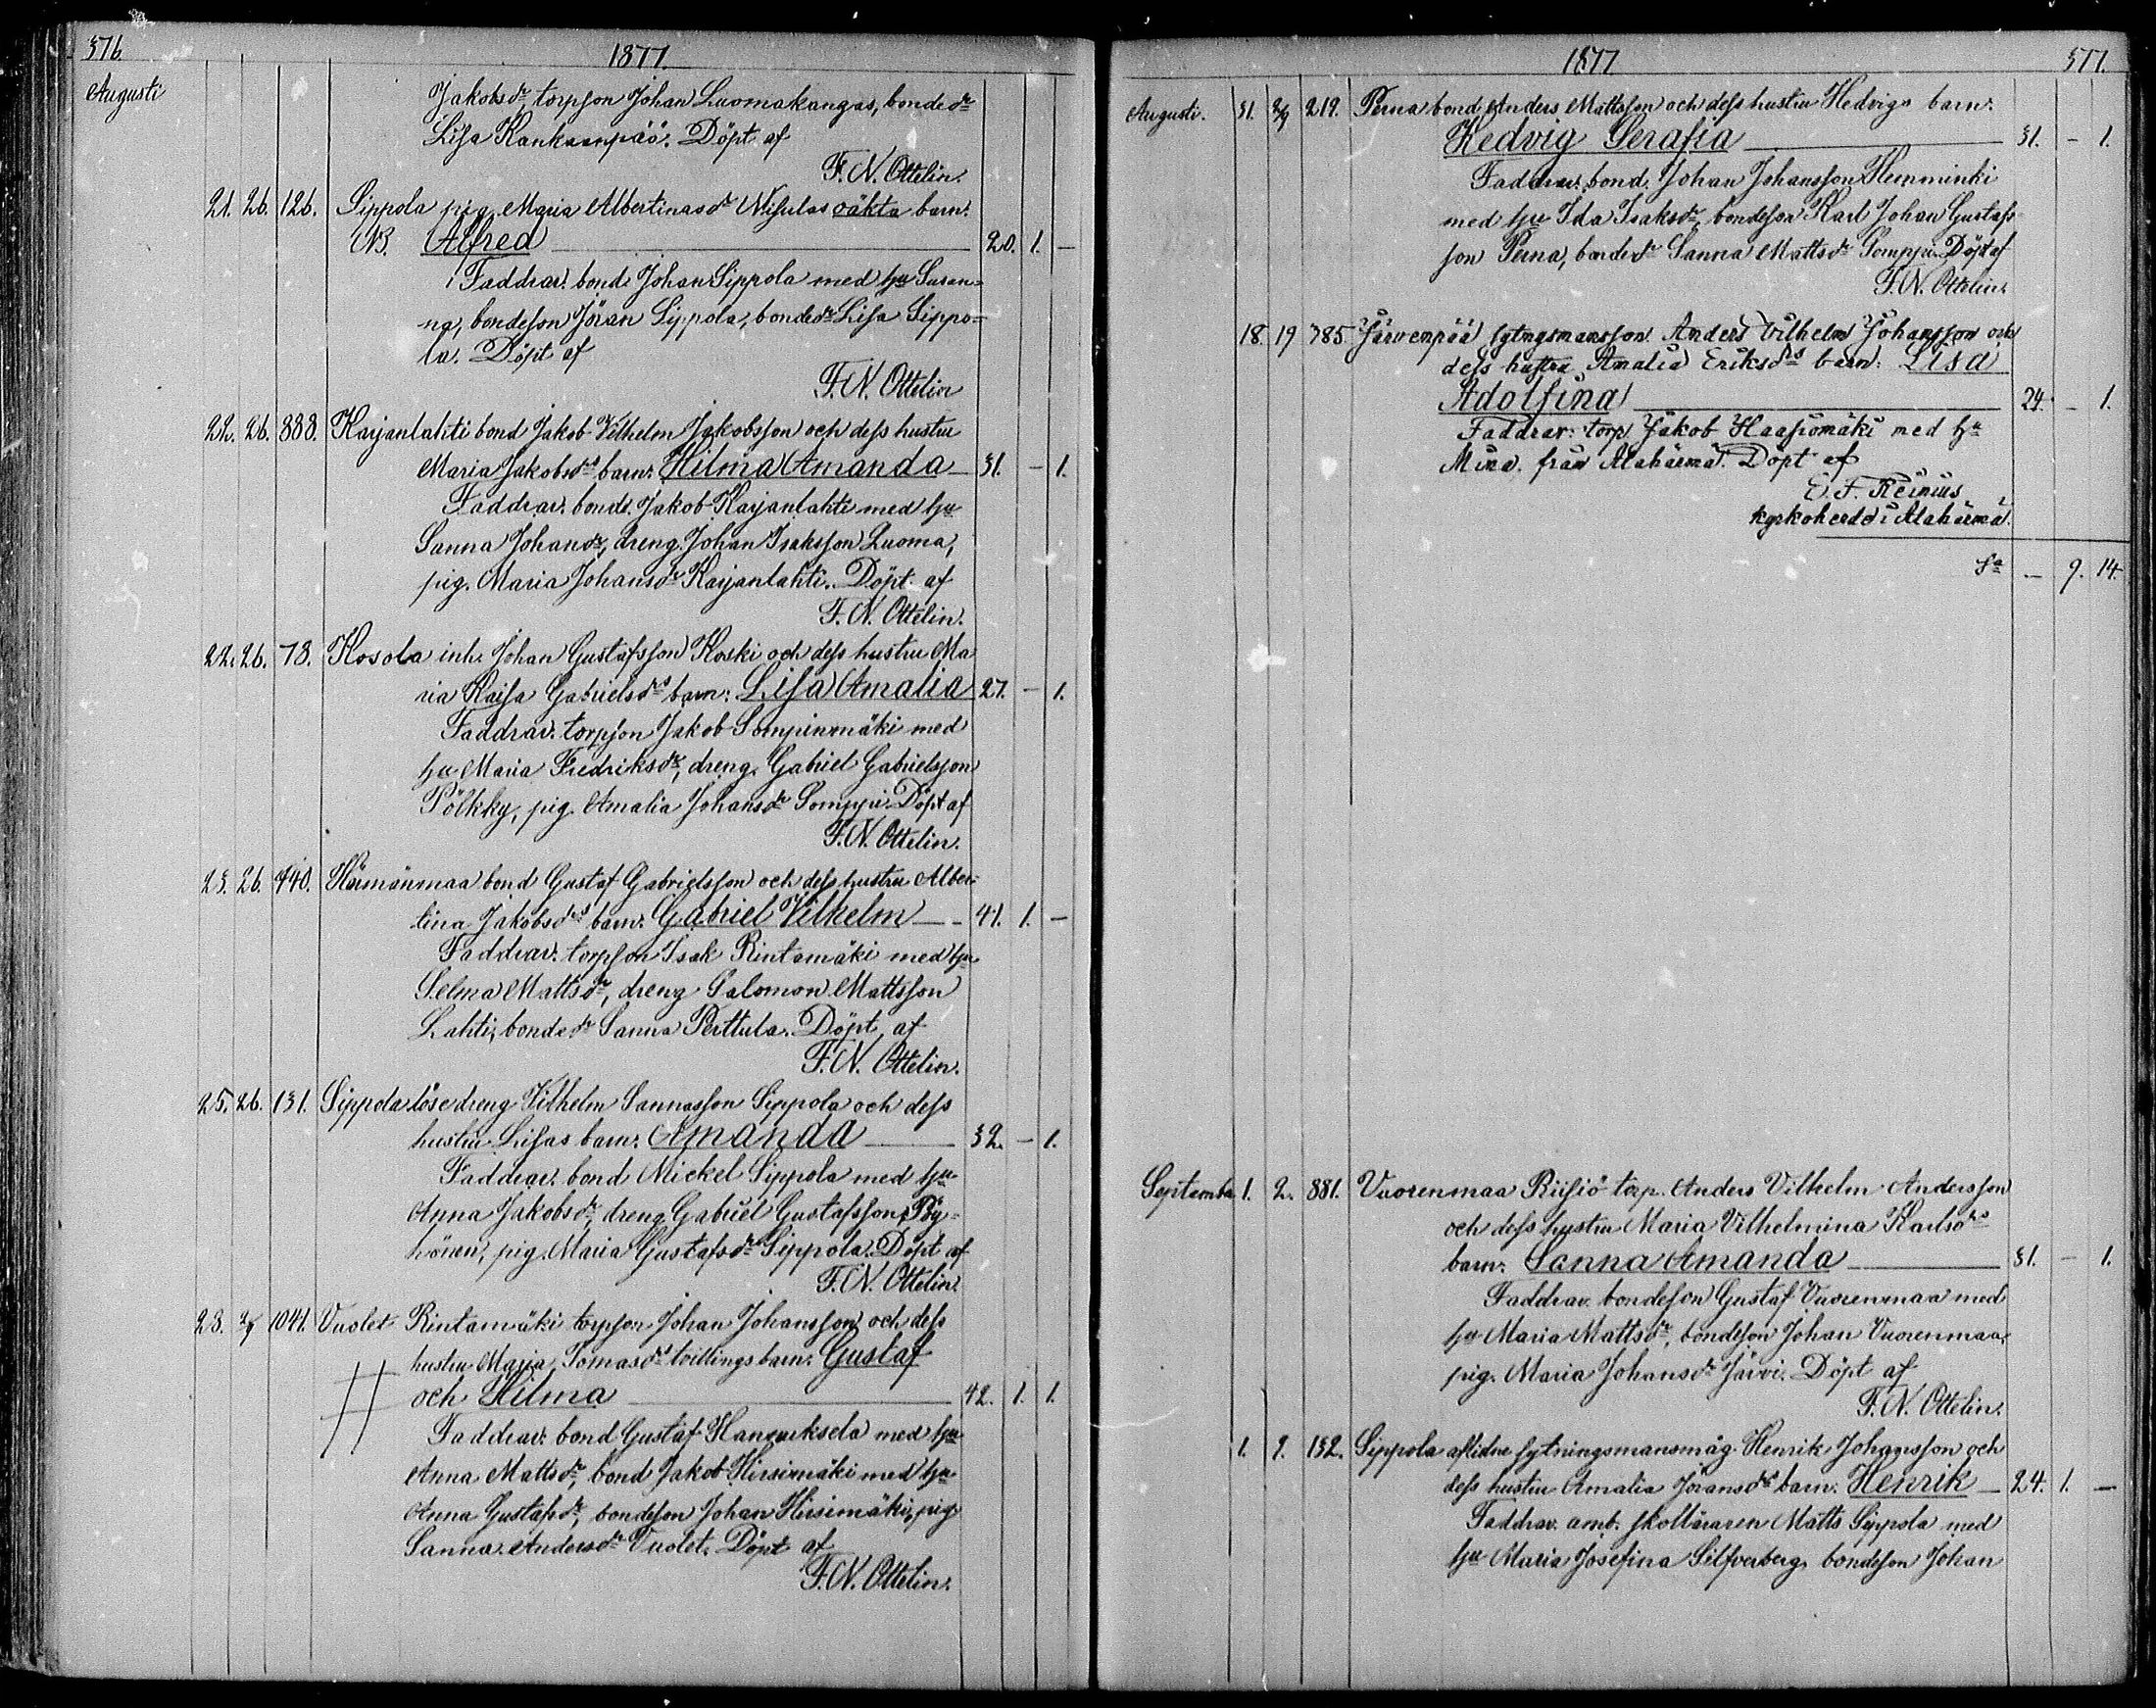 376.
1877.
Augusti
Jakobsdr, torpson Johan Luomakangas, bondedr
Lisa Kankaanpää. Döpt af
F. N. Ottelin.
21. 26. 126. Sippola pig. Maria Albertinasdr Nisulas oäkta barn:
NB. Alfred — 20. 1. —
Faddrar: bond. Johan Sippola med hu Susan=
na, bondeson Jöran Sippola, bondedr Lisa Sippo=
la. Döpt af
F. N. Ottelin
22. 26. 888. Karjanlahti bond Jakob Vilhelm Jakobsson och dess hustru
Maria Jakobsdrs barn: Hilma Amanda — 31. — 1.
Faddrar: bond. Jakob Karjanlahti med hu
Sanna Johansdr, dreng. Johan Isaksson Luoma,
pig. Maria Johansdr Karjanlahti. Döpt af
F. N. Ottelin.
22. 26. 78. Kosola inh. Johan Gustafsson Koski och dess hustru Ma
ria Kaisa Gabrielsdrs barn: Lisa Amalia 27. — 1.
Faddrar: torpson Jakob Sompinmäki med
hu Maria Fredriksdr, dreng. Gabriel Gabrielsson
Pölkky, pig. Amalia Johansdr Somppi. Döpt af
F. N. Ottelin.
23. 26. 940. Härmänmaa bond Gustaf Gabrielsson och dess hustru Alber=
tina Jakobsdrs barn: Gabriel Vilhelm — 41. 1. —
Faddrar: torpson Isak Rintamäki med hu
Selma Mattsdr, dreng Salomon Mattsson
Lahti, bondedr Sanna Perttula. Döpt af
F. N. Ottelin.
25. 26. 131. Sippola lösedreng Vilhelm Sannasson Sippola och dess
hustru Lisas barn: Amanda — 32. — 1.
Faddrar: bond Mickel Sippola med hu
Anna Jakobsdr, dreng Gabriel Gustafsson Pöy=
hönen, pig. Maria Gustafsdr Sippola. Döpt af
F. N. Ottelin.
28. 2/9 1041. Vuolet Rintamäki torpson Johan Johansson och dess
hustru Maria Tomasdrs tvillingsbarn: Gustaf
och Hilma — 42. 1. 1.
Faddrar: bond Gustaf Hangasksela med hu
Anna Mattsdr, bond Jakob Hirsimäki med hu
Anna Gustafsdr, bondeson Johan Hirsimäki, pig
Sanna Andersdr Vuolet. Döpt af
F. N. Ottelin.
1877.
377.
Augusti. 31. 2/9 219. Perna bond. Anders Mattsson och dess hustru Hedvigs barn:
Hedvig Serafia — 31. — 1.
Faddrar: bond. Johan Johansson Hemminki
med hu Ida Isaksdr, bondeson Karl Johan Gustafs
son Perna, bondedr Sanna Mattsdr Somppi. Döpt af
F. N. Ottelin.
18. 19 385. Järvenpää sytngsmansson Anders Vilhelm Johansson och
dess hustru Amalia Eriksdrs barn: Lisa
Adolfina — 24. — 1.
Faddrar: torp Jakob Haapomäki med hu
Mina från Alahärmä. Döpt af
E. F. Reinius
kyrkoherde i Alahärmä.
Sa — 9. 14.
September 1. 2. 881. Vuorenmaa Riisiö torp. Anders Vilhelm Andersson
och dess hustru Maria Vilhelmina Karlsdrs
barn: Sanna Amanda — 31. — 1.
Faddrar: bondeson Gustaf Vuorenmaa med
hu Maria Mattsdr, bondeson Johan Vuorenmaa,
pig. Maria Johansdr Järvi. Döpt af
F. N. Ottelin.
1. 9. 132. Sippola aflidne sytningsmansmåg Henrik Johansson och
dess hustru Amalia Jöransdrs barn: Henrik — 24. 1. —
Faddrar: amb. skolläraren Matts Sippola med
hu Maria Josefina Silfverberg, bondeson Johan